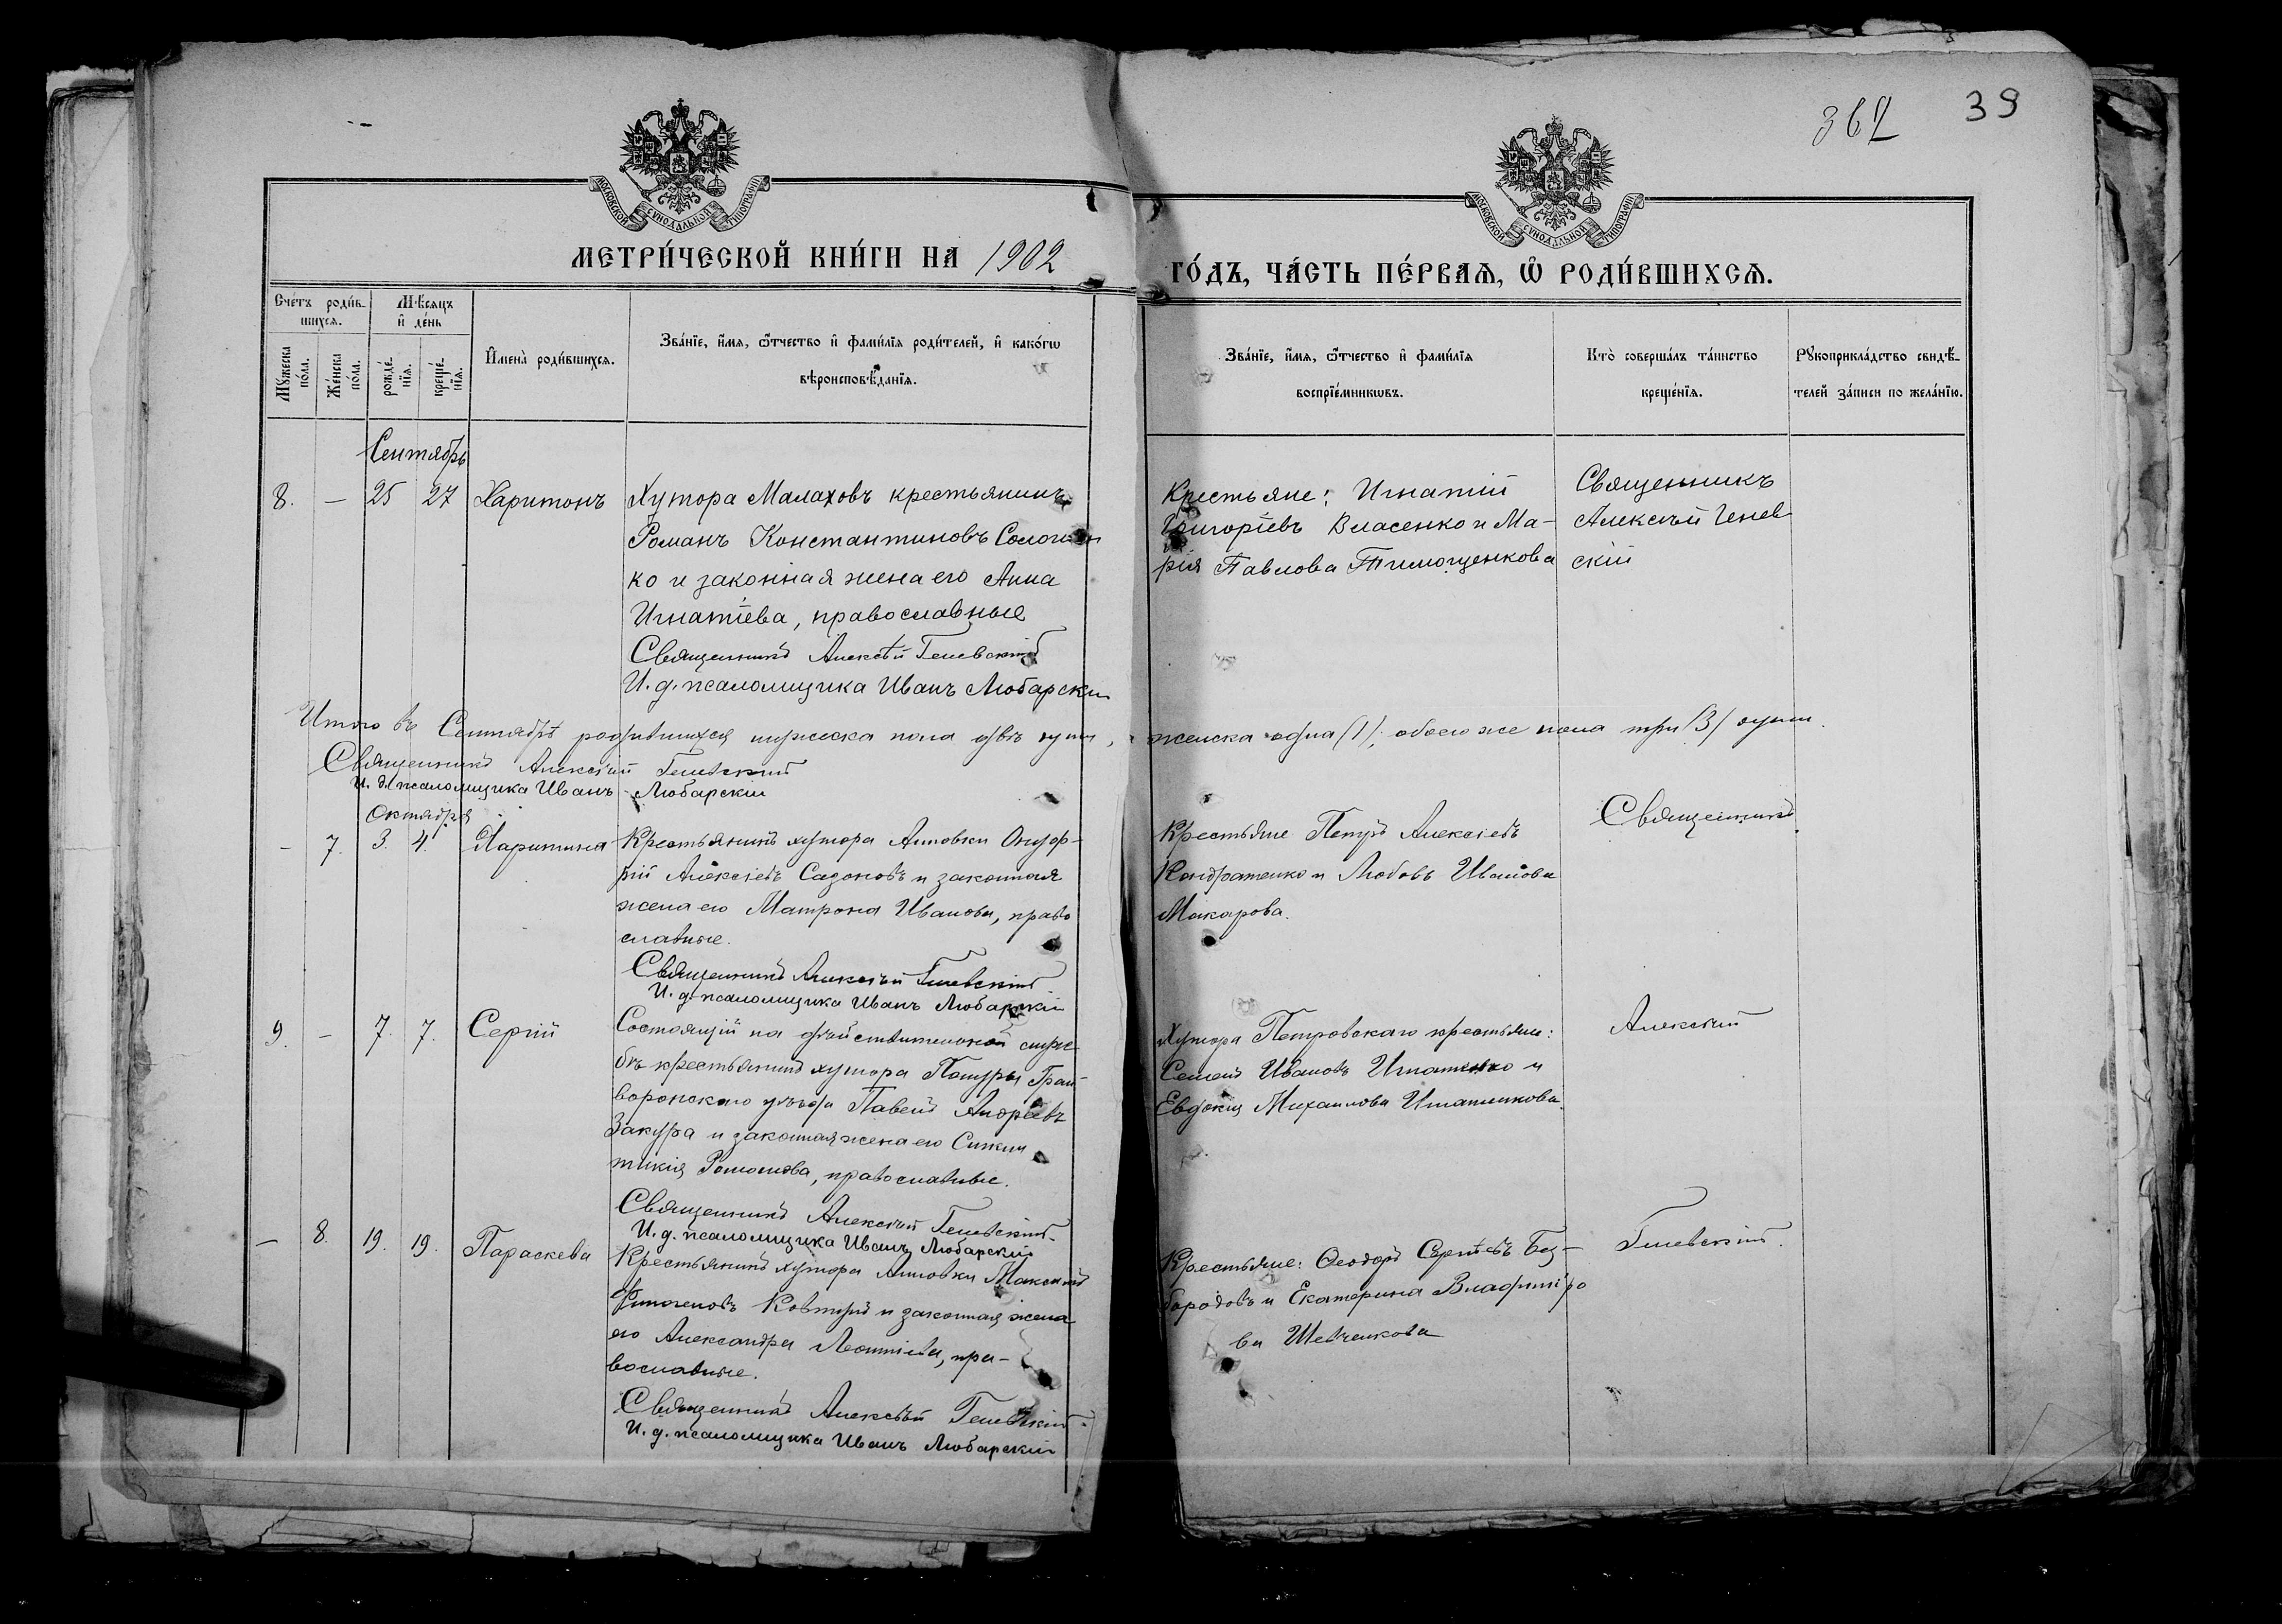 367 39
МОСКОВСКОЙ СѴНОДАЛЬНОЙ ТИПОГРАФІИ
МОСКОВСКОЙ СѴНОДАЛЬНОЙ ТИПОГРАФІИ
МЕТРИ́ЧЕСКОЙ КНИ́ГИ НА 1902 ГО́ДЪ, ЧА́СТЬ ПЕ́РВАѦ, Ѡ҆ РОДИ́ВШИХСѦ.
Сче́тъ роди́в-
шихсѧ.
Мѣ́сѧцъ
и҆ де́нь
Мꙋ́жеска
по́ла.
Же́нска
по́ла.
рожде́-
нїѧ.
креще́-
нїѧ.
И҆мена̀ роди́вшихсѧ.
Зва́нїе, и҆́мѧ, ѻ҆́тчество и҆ фами́лїѧ роди́телей, и҆ како́гѡ
вѣроисповѣ́данїѧ.
Зва́нїе, и҆́мѧ, ѻ҆́тчество и҆ фами́лїѧ
воспрїе́мникѡвъ.
Кто̀ соверша́лъ та́инство
креще́нїѧ.
Рꙋкоприкла́дство свидѣ́-
телей за́писи по жела́нїю.
Сентябрь
8. — 25 27 Харитонъ
Хутора Малаховъ крестьянинъ
Романъ Константиновъ
ко и законная жена его Анна
Игнатіева, православные
Священникъ Алексѣй Геневскій
И. д. псаломщика Иванъ Любарскій
Крестьяне: Игнатій
Григоріевъ Власенко и Ма-
рія Павлова Тимощенкова
Священникъ
Алексѣй Генев
скій
Итого въ Сентябрѣ родившихся мужеска пола двѣ души, женска одна (1), обоего же пола три (3) души.
Священникъ Алексѣй Геневскій
И. д. псаломщика Иванъ Любарскій
Октября
— 7. 3. 4. Харитина
Крестьянинъ хутора Анновки Онуф-
рій Алексіевъ Сазоновъ и законная
жена его Матрона Иванова, право
славные.
Священникъ Алексѣй Геневскій
И. д. псаломщика Иванъ Любарскій
Крестьяне Петръ Алексіевъ
Кондратенко и Любовь Иванова
Макарова.
Священникъ
9. — 7. 7. Сергій
Состоящій на дѣйствительной служ
бѣ крестьянинъ хутора Попуры Грай-
воронскаго уѣзда Павелъ Андреевъ
Закура и законная жена его Синкли
тикія Романова, православные.
Священникъ Алексѣй Геневскій
И. д. псаломщика Иванъ Любарскій
Хутора Петровскаго крестьяне:
Семенъ Ивановъ Игнатенко и
Евдокія Михаилова Игнатенкова.
Алексѣй
— 8. 19. 19. Параскева
Крестьянинъ хутора Анновки Максимъ
Ковтунъ и законная жена
его Александра Леонтіева, пра-
вославные.
Священникъ Алексѣй Геневскій
И. д. псаломщика Иванъ Любарскій
Крестьяне: Ѳеодоръ Сергіевъ Без-
бородовъ и Екатерина Владиміро
ва Шевченкова
Геневскій.